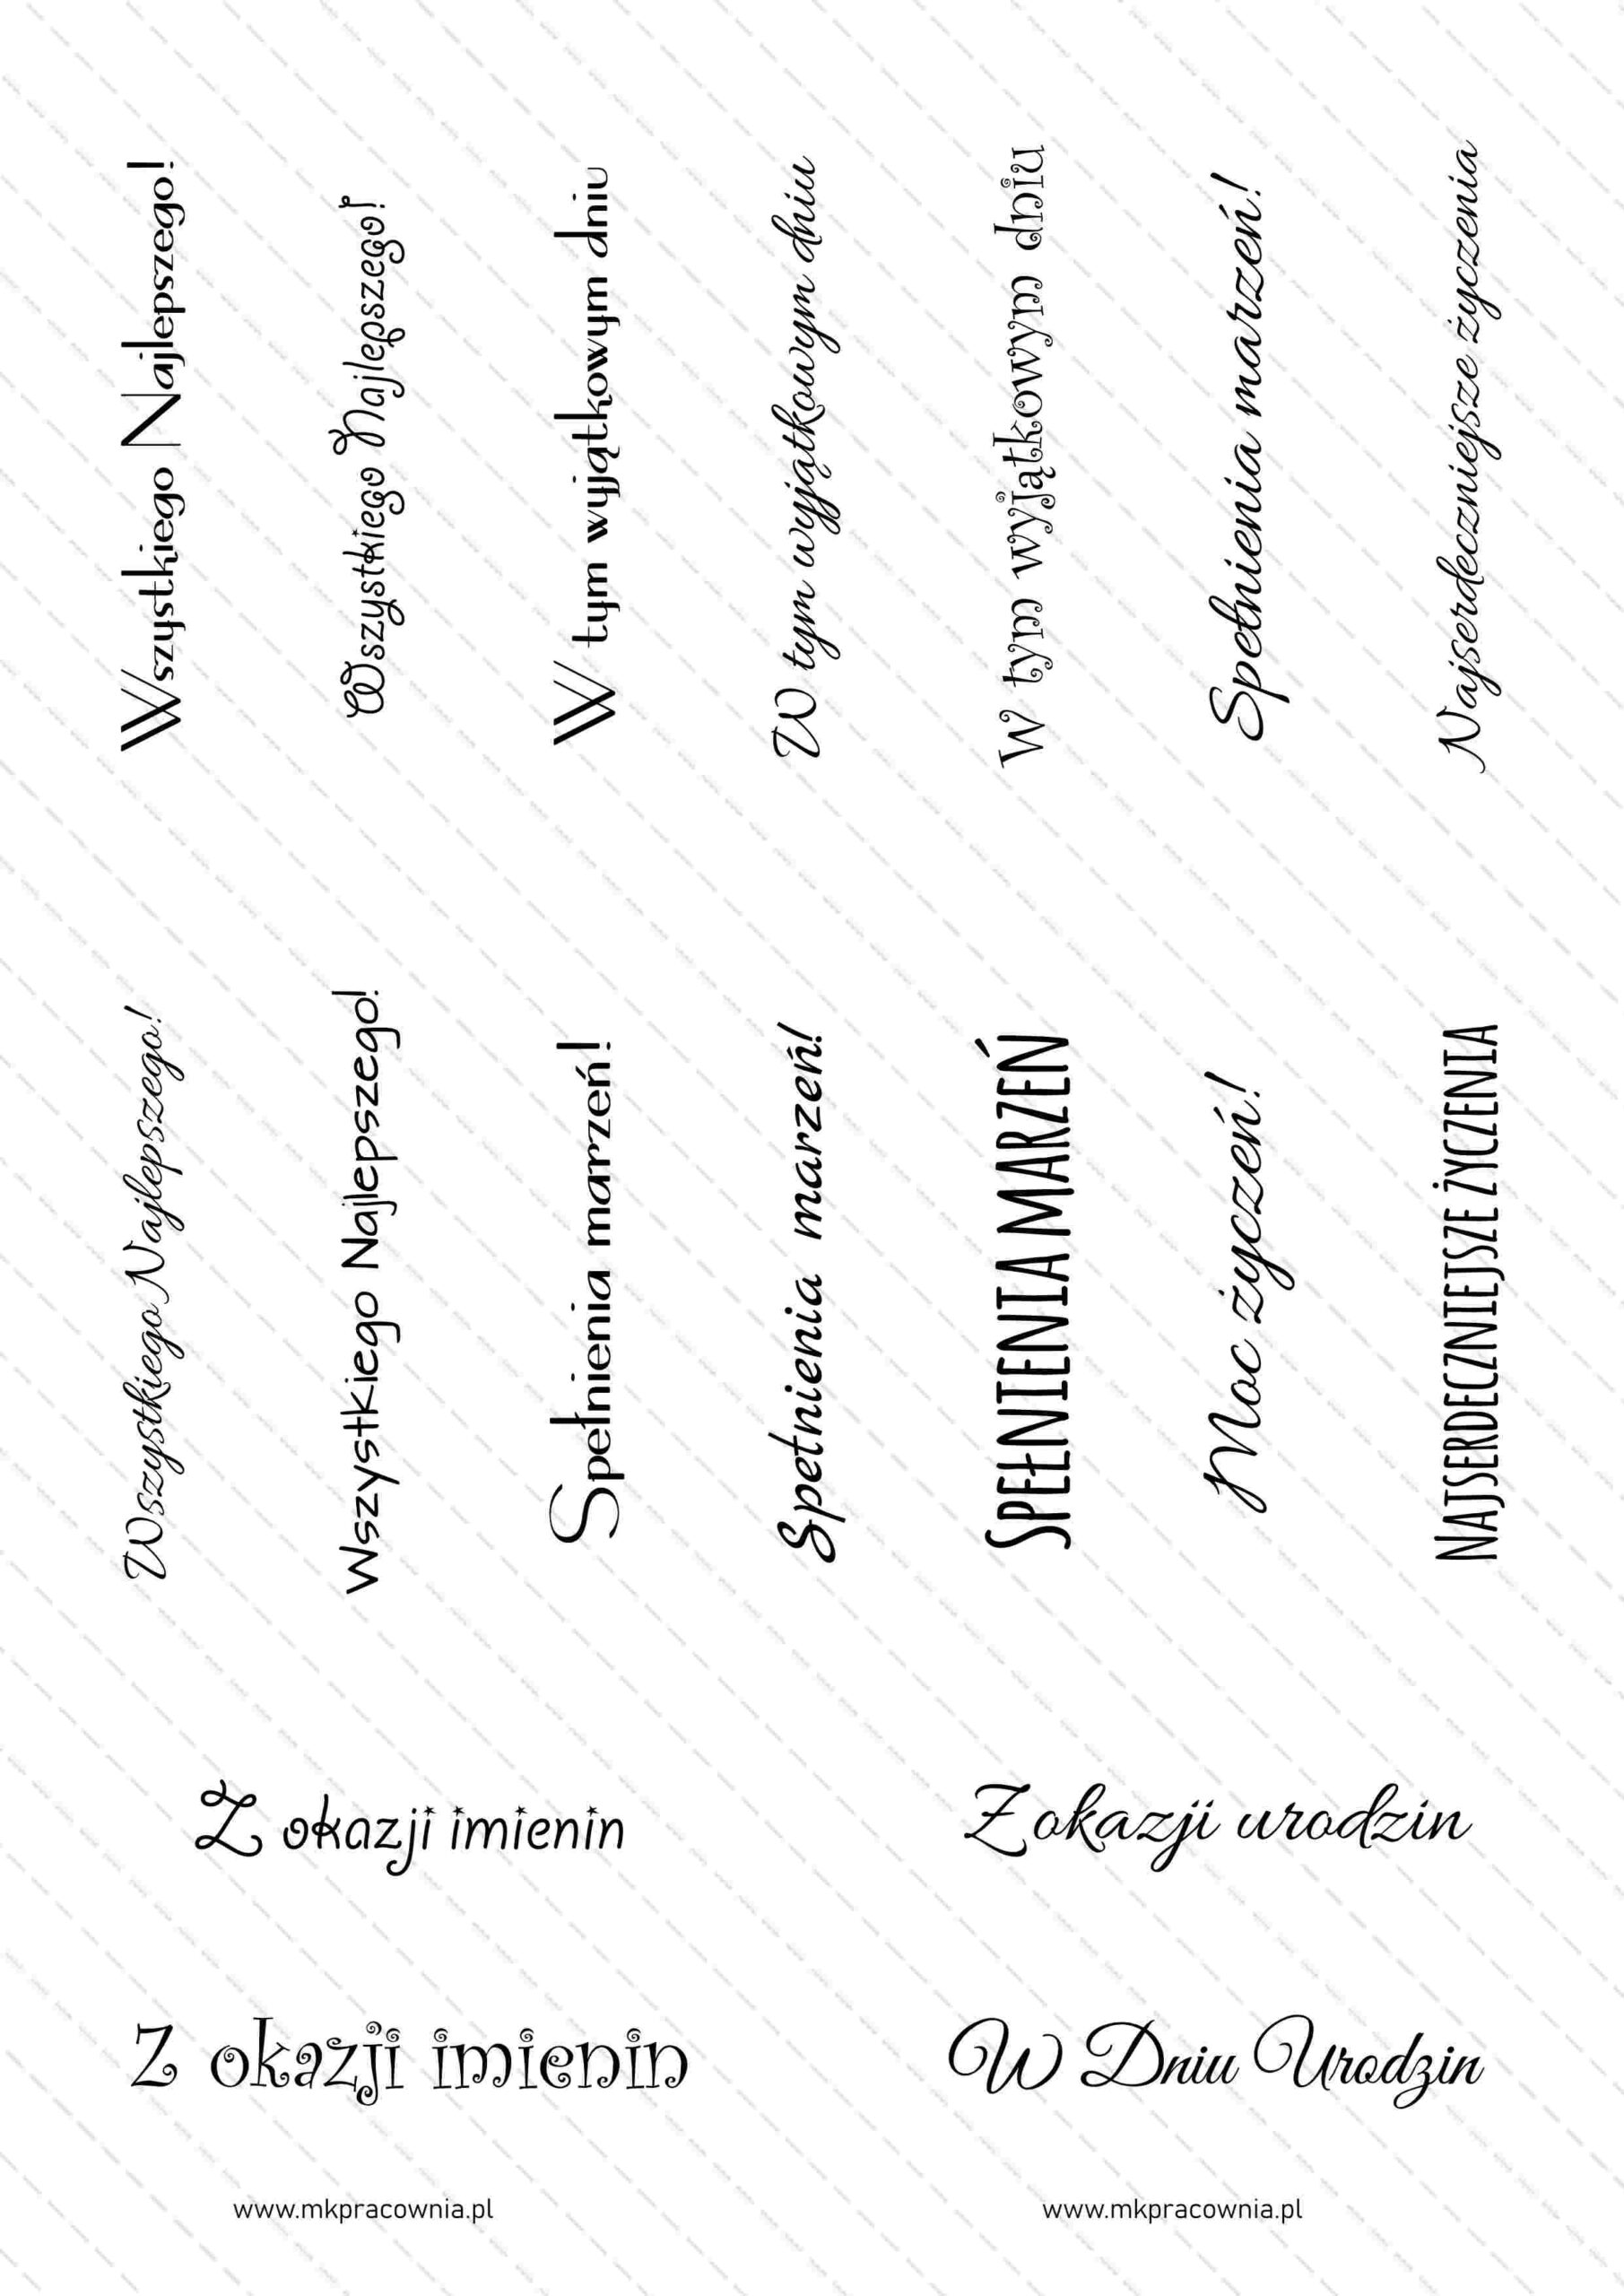 Wszystkiego Najlepszego!
Wszystkiego Najlepszego!
W tym wyjątkowym dniu
W tym wyjątkowym dniu
W tym wyjątkowym dniu
Spełnienia marzeń!
Najserdeczniejsze życzenia
Wszystkiego Najlepszego!
Wszystkiego Najlepszego!
Spełnienia marzeń!
Spełnienia marzeń!
SPEŁNIENIA MARZEŃ
Moc życzeń!
NAJSERDECZNIEJSZE ŻYCZENIA
Z okazji imienin
Z okazji urodzin
Z okazji imienin
W Dniu Urodzin
www.mkpracownia.pl
www.mkpracownia.pl